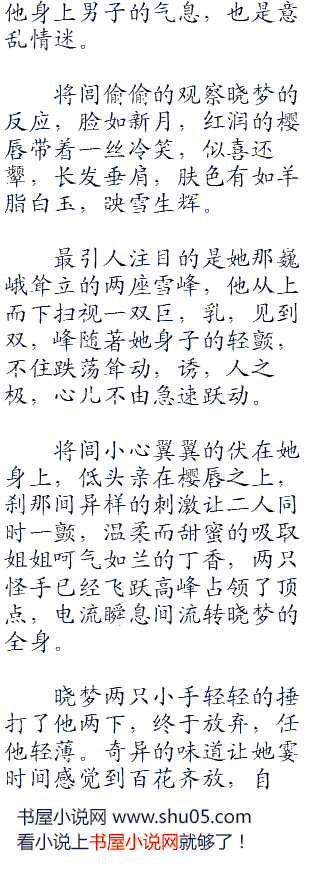 他身上男子的气息，也是意
乱情迷。
将闾偷偷的观察晓梦的
反应，脸如新月，红润的樱
唇带着一丝冷笑，似喜还
颦，长发垂肩，肤色有如羊
脂白玉，映雪生辉。
最引人注目的是她那巍
峨耸立的两座雪峰，他从上
而下扫视一双巨，乳，见到
双，峰随著她身子的轻颤，
不住跌荡耸动，诱，人之
极，心儿不由急速跃动。
将闾小心翼翼的伏在她
身上，低头亲在樱唇之上，
刹那间异样的刺激让二人同
时一颤，温柔而甜蜜的吸取
姐姐呵气如兰的丁香，两只
怪手已经飞跃高峰占领了顶
点，电流瞬息间流转晓梦的
全身。
晓梦两只小手轻轻的捶
打了他两下，终于放弃，任
他轻薄。奇异的味道让她霎
时间感觉到百花齐放，自
书屋小说网 www.shu05.com
看小说上书屋小说网就够了！